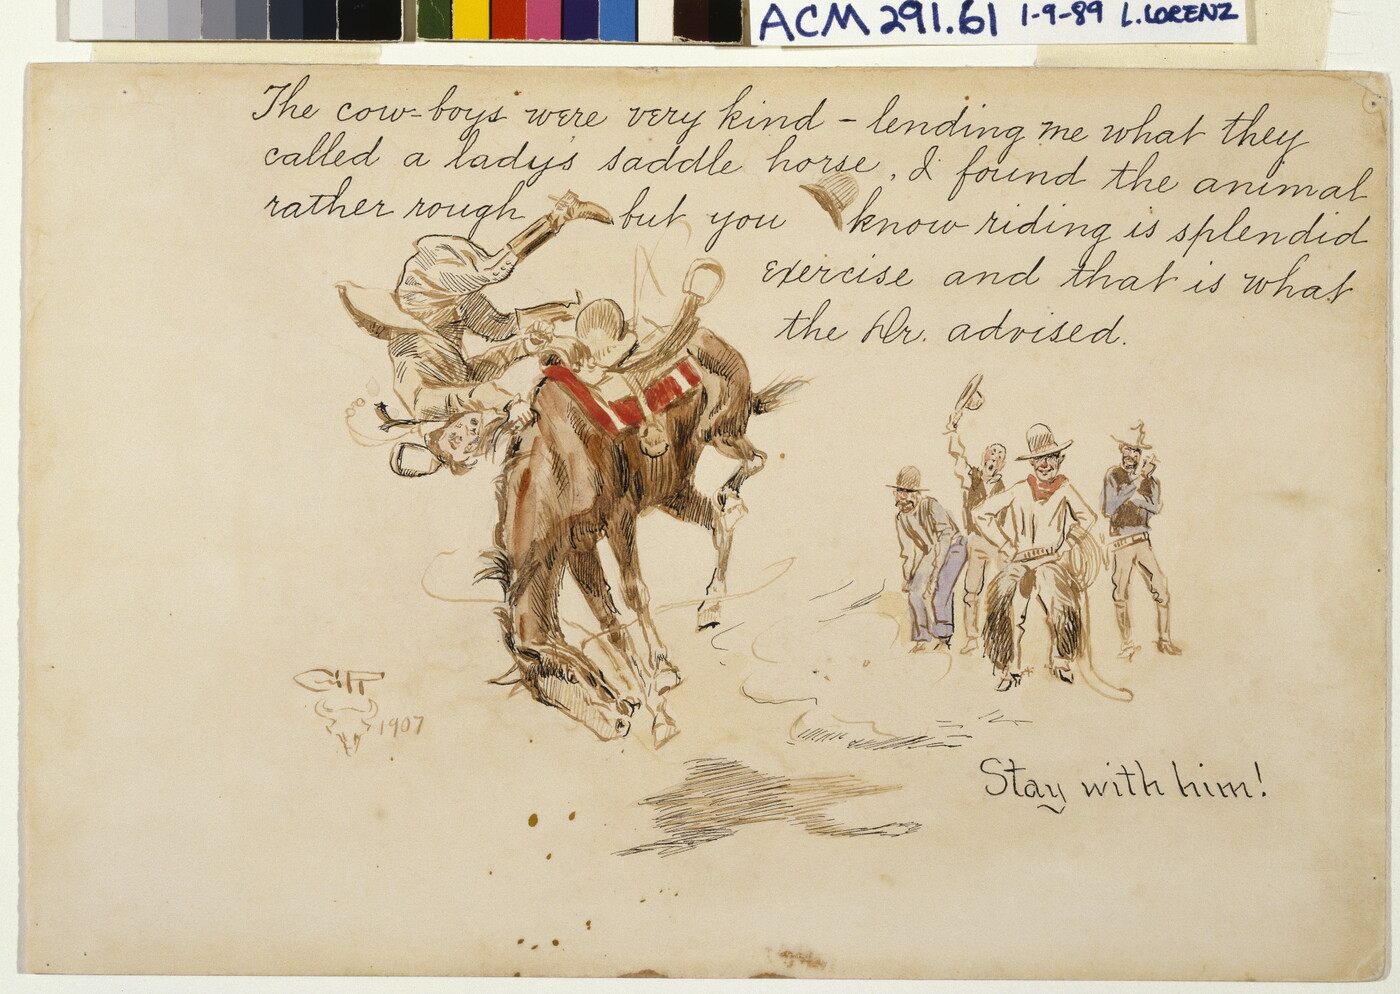 ACM 291.61 1-9-89 L. LORENZ
The cow-boys were very kind - lending me what they
called a lady's saddle horse, I found the animal
rather rough but you know riding is splendid
exercise and that is what
the Dr. advised.
1907
Stay with him!